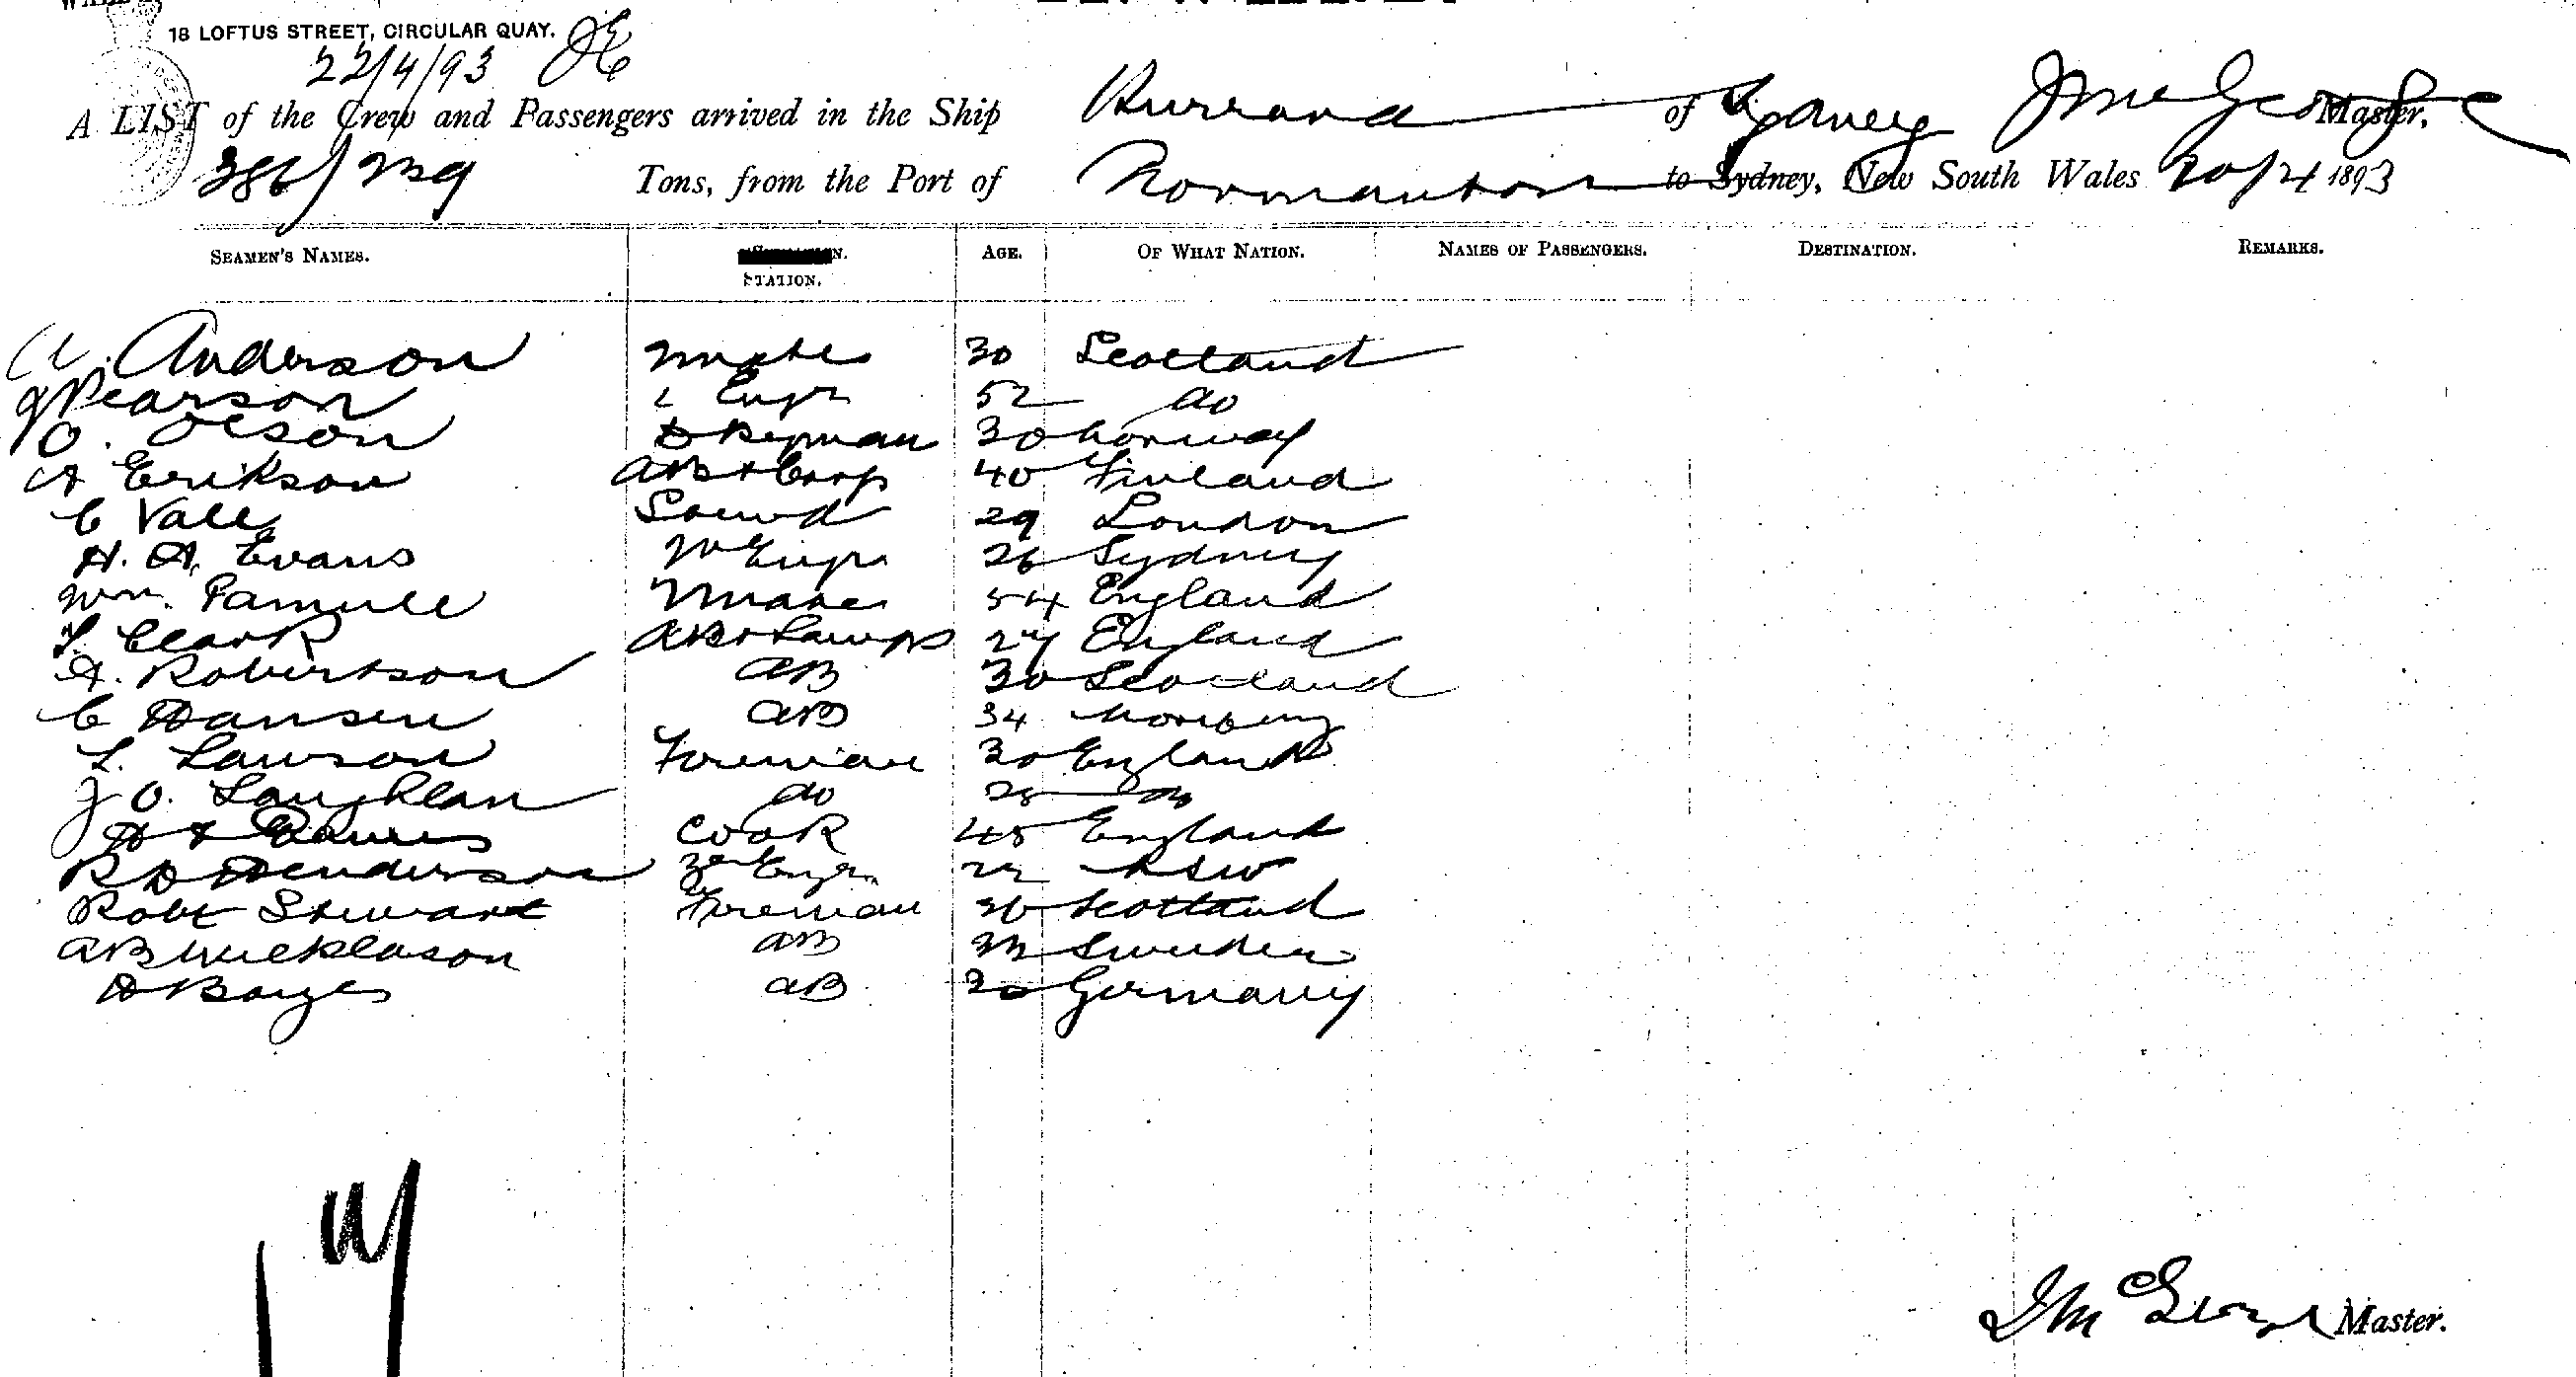 18 LOFTUS STREET, CIRCULAR QUAY.
22/4/93
A LIST of the Crew and Passengers arrived in the Ship Burrara of Sydney J McGeorge Master,
386/239 Tons, from the Port of Normanton to Sydney, New South Wales 20/4 1893
SEAMEN'S NAMES. STATION. AGE. OF WHAT NATION. NAMES OF PASSENGERS. DESTINATION. REMARKS.
A. Anderson Mate 30 Scotland
J Pearson 1 Engr 52 do
O. Olson Dkeyman 30 Norway
A Erikson AB & 40 Finland
C Vale Stewd 29 London
H. A. Evans 2nd Engr 26 Sydney
Wm. 2 Mate 54 England
T. Clark AB & Lamps 27 England
A. Robertson AB 30 Scotland
C Hansen AB 34 Norway
L. Lawson Fireman 30 England
J O. Laughlan do 28 do
Cook 45 England
R D Henderson 3rd Engr NSW
Robt Stewart Fireman Scotland
AB Sweden
AB 30 Germany
J McGeorge Master.